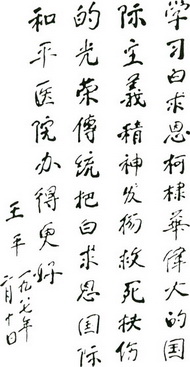 学习白求恩柯棣華偉大的国
际主義精神发扬救死扶伤
的光荣傳统把白求恩国际
和平医院办得更好
王平
一九八七年
六月十日